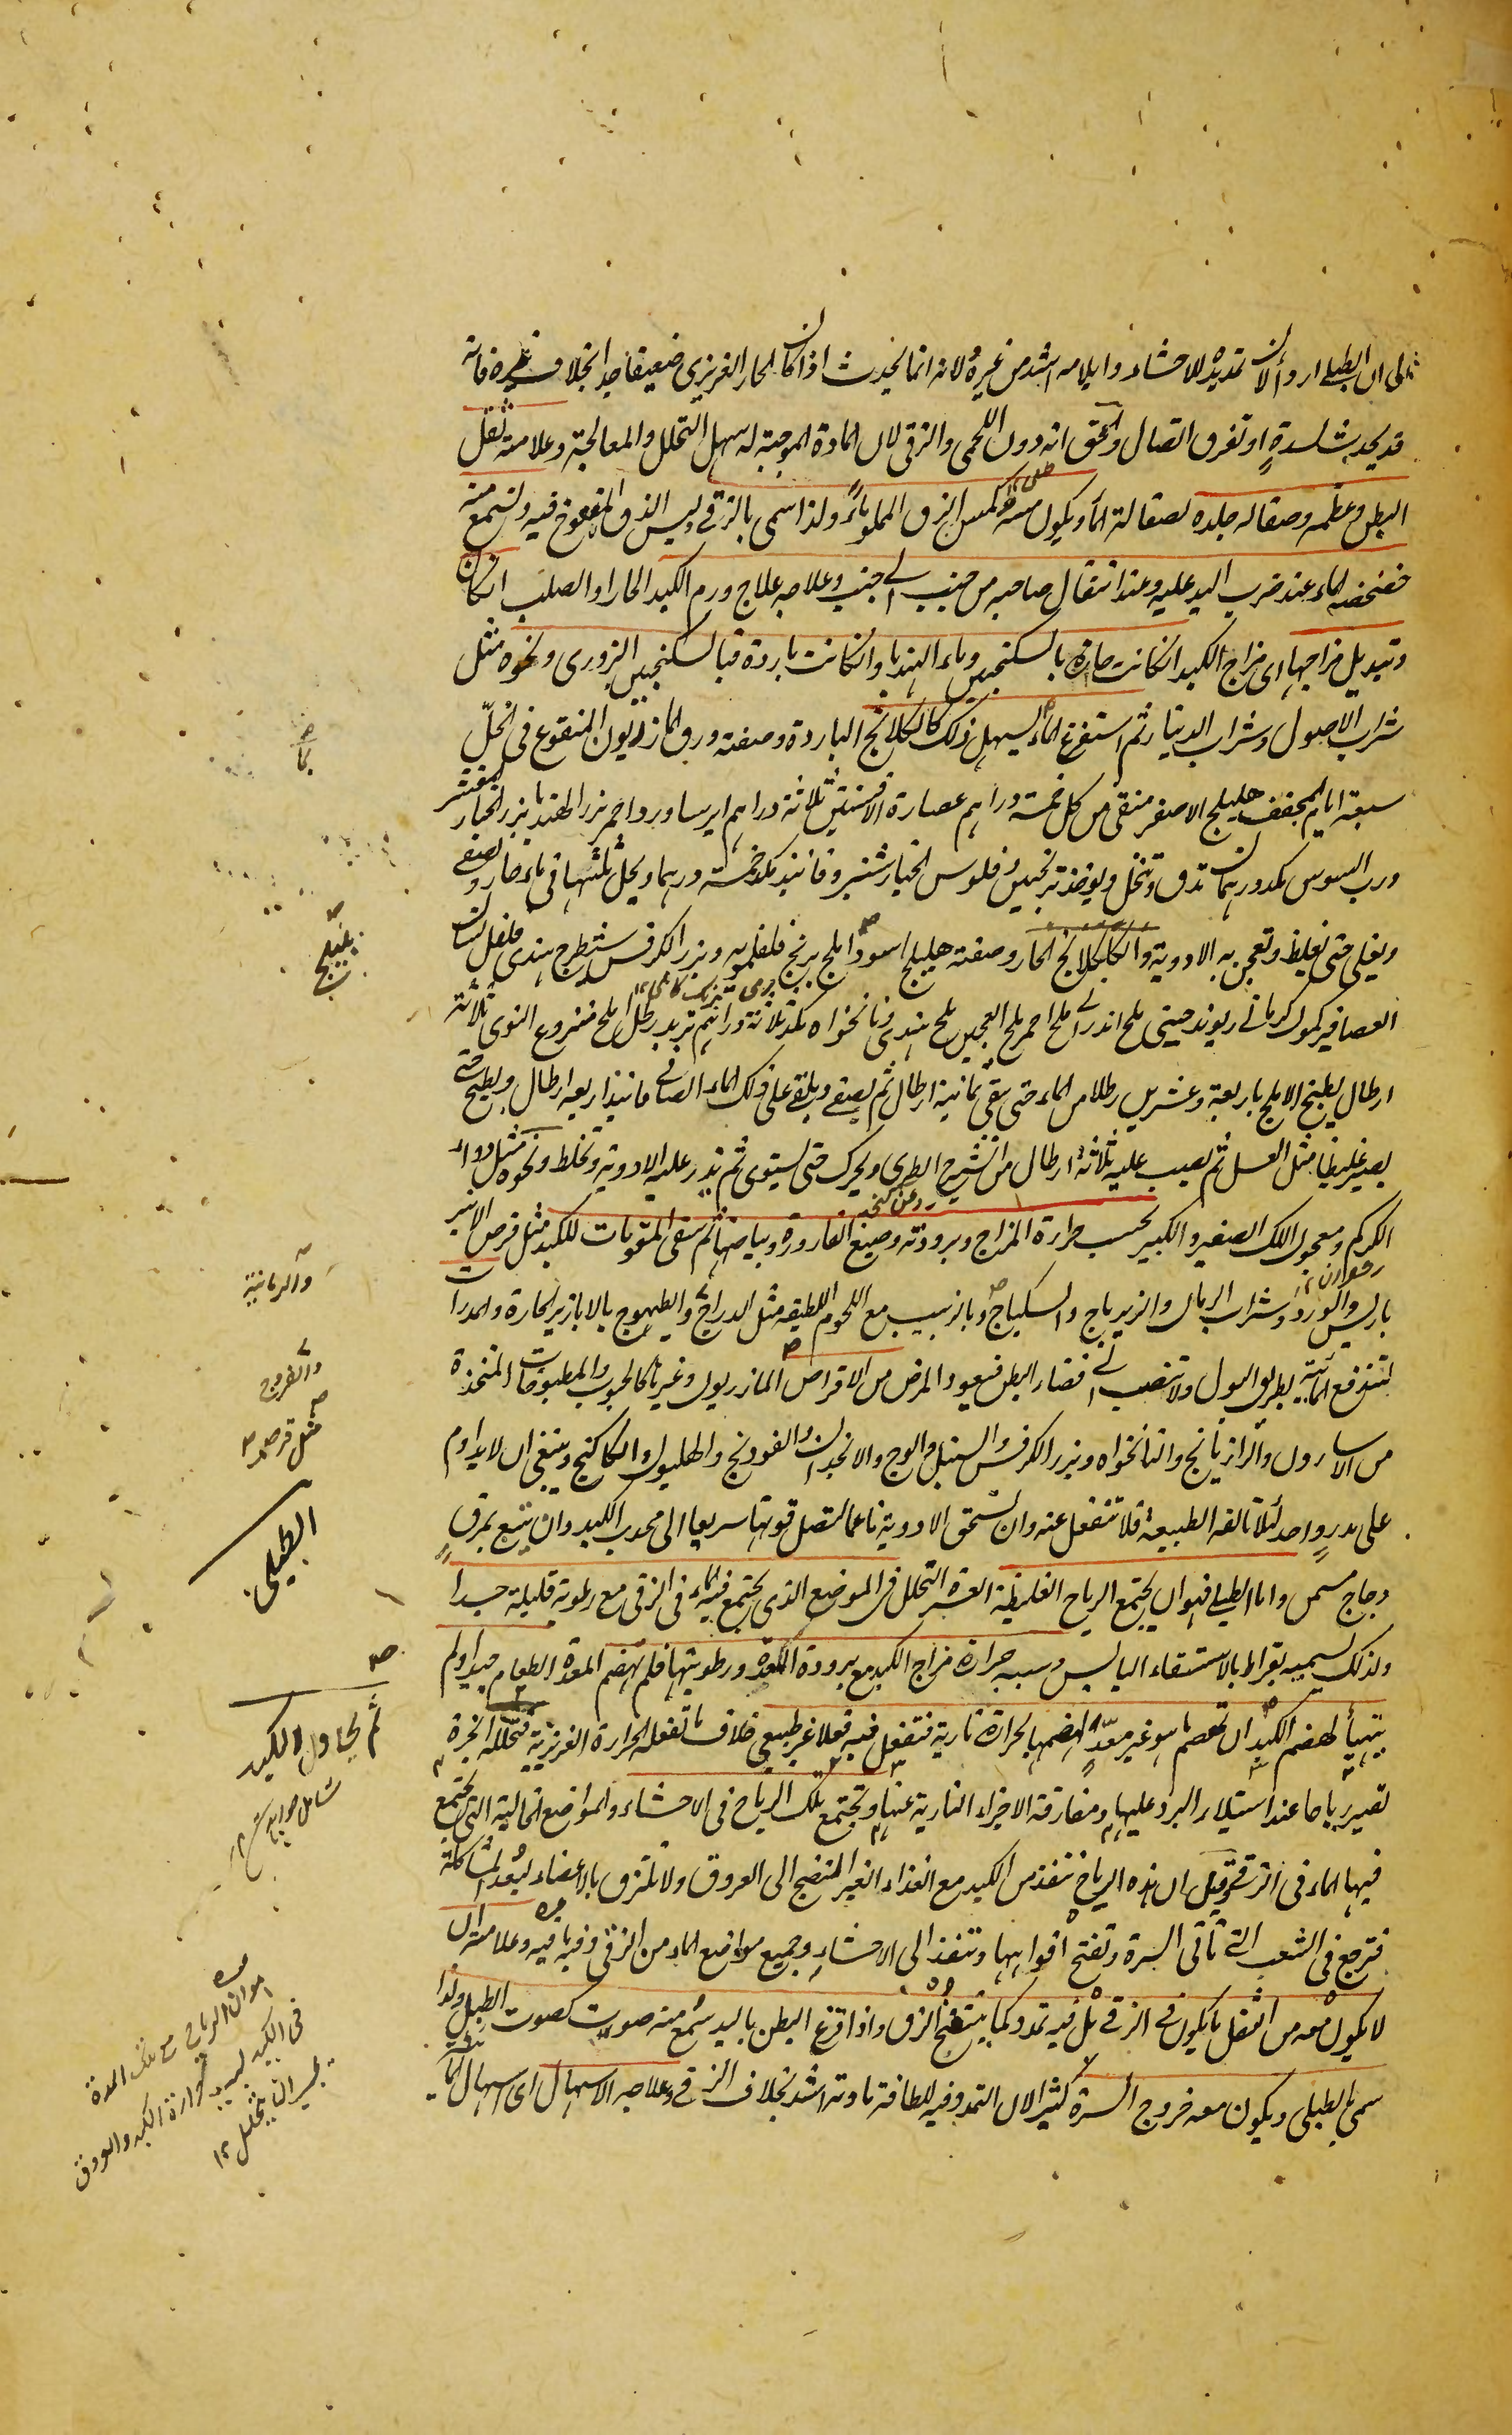 الى ان الطبلى اردأ لان تمديده للاحشاء وايلامه اشد من غيره ولانه انما يحدث اذا كان الحار الغريزى ضعيفا جدا بخلاف غيره فانه
قد يحدث لسدة او تفرق اتصال والحق انه دون اللحمى والزقى لان المادة الموجبة له سهل التحلل والمعالجة وعلامته ثقل
البطن وعظمه وصقاله جلده لصقالة الماء ويكون مسه كمس الزق المملو ماءً ولذا سمى بالزقى وليس الزق المنفوخ فيه ولتسمع منه
خضخضة الماء عند ضرب اليد عليه وعند انتقال صاحبه من جنب الى جنب وعلاجه علاج ورم الكبد الحار او الصلب ان كان
وتبديل مزاجها اى مزاج الكبد ان كانت حارة بالسكنجبين وماء الهندبا وان كانت باردة فبالسكنجبين البزورى ونحوه مثل
شراب الاصول وشراب الدينار ثم استفرغ الماء يسهل ذلك كالكلكلانج الباردة وصفته ورق المازريون المنقوع فى الخل
سبعة ايام المجفف هليلج الاصفر منقى من كل خمسة دراهم عصارة الافسنتين ثلاثة دراهم ايرسا ورد احمر بزر الهندبا بزر الخيار المقشر
ورب السوس مكد درهمان تدق وتنخل ويؤخذ ترنجبين وفلوس الخيارشنبر وفانيذ مكد خمسة درهما ويحل ثلثها فى ماء حار ويصفى
ويغلى حتى يغليظ وتعجن به الادوية والكلكلانج الحار وصفته هليلج اسود املج برنج فلفلمويه وبزر الكرفس شيطرج هندى فلفل لسان
العصافير كمون كرمانى ريوند صينى ملح اندرانى ملح احمر ملح العجين ملح هندى ونانخواه مكد ثلاثة دراهم تربد رطل املج منزوع النوى ثلاثة
ارطال يطبخ الاملج باربعة وعشرين رطلا من الماء حتى يبقى ثمانية ارطال ثم يصفى ويلقى على ذلك الماء الصافى فانيذ اربعه ارطال ويطبخ حتى
يصير غليظا مثل العسل ثم يصب عليه ثلاثة ارطال من الشيرج الطرى ويحرك حتى يستوى ثم يذر عليه الادوية وتخلط ونحوه مثل دواء
روغن كنجد
الكركم ومعجون اللك الصغير والكبير بحسب حرارة المزاج وبرودته وصبغ القارورة وبياضها ثم سقى المقويات للكبد مثل قرص الانبر
باريس والورد وشراب الرمان والزيرباج والسكباج وبالزبيب مع اللحوم اللطيفه مثل الدراج والطيهوج بالابازير الحارة والمدرات
لتندفع المائية بطريق البول ولا تنصب الى فضاء البطن فيعود المرض من الاقراص المازريون وغيرها كالحبوب والمطبوخات المتخذة
من الاسارون والرازيانج والنانخواه وبزر الكرفس والسنبل والوج والانجدان والفودنج والهليون والكاكنج وينبغى ان لا يداوم
على مدر واحد لئلا تالفه الطبيعة فلا تنفعل عنه وان تسحق الادوية ناعما لتصل قوتها سريعا الى محدب الكبد وان يتبع بمرق
دجاج مسمن واما الطبلى فهو ان يجتمع الرياح الغليظة العسرة التحلل فى الموضع الذى يجتمع فيه الماء فى الزقى مع رطوبة قليلة جدا
ولذلك يسميه بقراط بالاستسقاء اليابس وسببه حرارة مزاج الكبد مع برودة المعدة ورطوبتها فلم تهضم المعدة الطعام جيدا ولم
يتهيأ لهضم الكبد ان تهضم ما هو غير معد لهضمها بالحرارة نارية فتفعل فيه فعلا غير طبيعى خلاف ما تفعله الحرارة الغريزية فتحلله ابخرة
تصير رياحا عند استيلاء البرد عليها ومفارقة الاجزاء النارية عنها وتجتمع تلك الرياح فى الاحشاء والمواضع الخالية التى يجتمع
فيها الماء فى الزقى وقيل ان هذه الرياح تنفذ من الكبد مع الغذاء الغير المنضج الى العروق ولا تلتزق بالاعضاء لبعد المشاكلة
فترجع فى الشعب التى تأتى السرة وتفتح افواهها وتنفذ الى الاحشاء وجميع مواضع الماء من الزقى وفيه ما فيه وعلامته ان
لا يكون معه من الثقل ما يكون فى الزقى بل فيه تمدد كما ينتفخ الزق واذا قرع البطن باليد سُمع منه صوت كصوت الطبل ولذا
سمى بالطبلى ويكون معه خروج السرة كثيرا لان التمدد فيه للطافة مادته اشد بخلاف الزقى وعلاجه الاسهال اى اسهال المائية
بليلج
والرمانية
والفروج
مثل قرص
الطبلى
ثم يحاول الكبد
هو ان الرياح مع تلك المدة
فى الكبد لسبب حرارة الكبد والعروق
عسير ان يتحلل ١٢